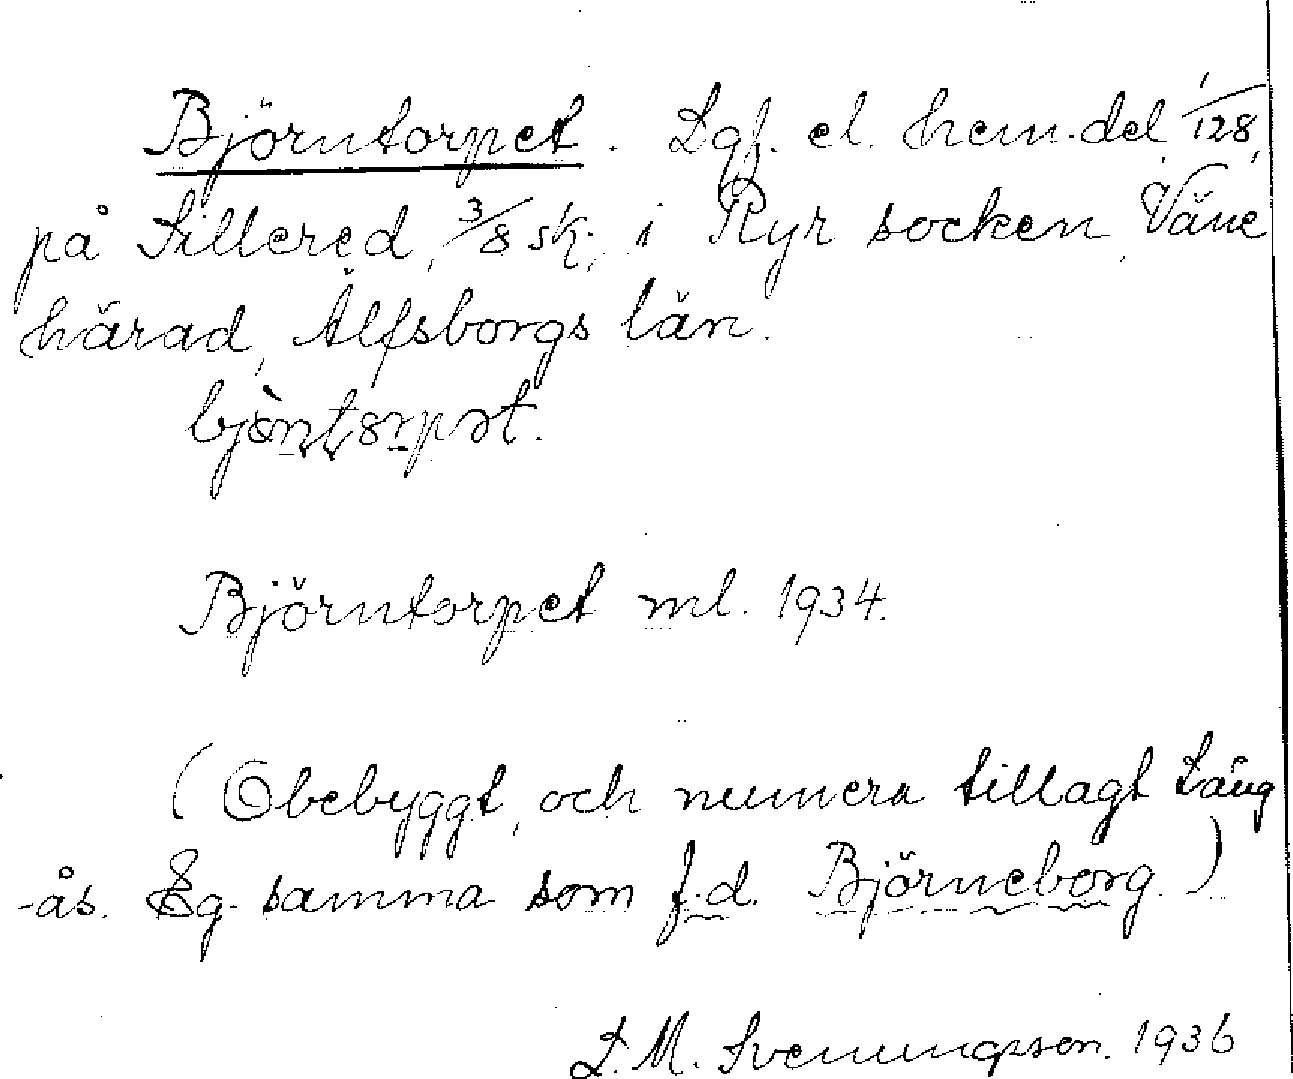 Björntorpet. Lgf. el. hem.del 1/128,
på Sillered, 3/8 sk., i Ryr socken, Väne
härad, Älfsborgs län.

Björntorpet ml. 1934.
(Obebyggt, och numera tillagt Läng
-ås. Eg. samma som f.d. Björneborg.)
L. M. Svenungsson. 1936